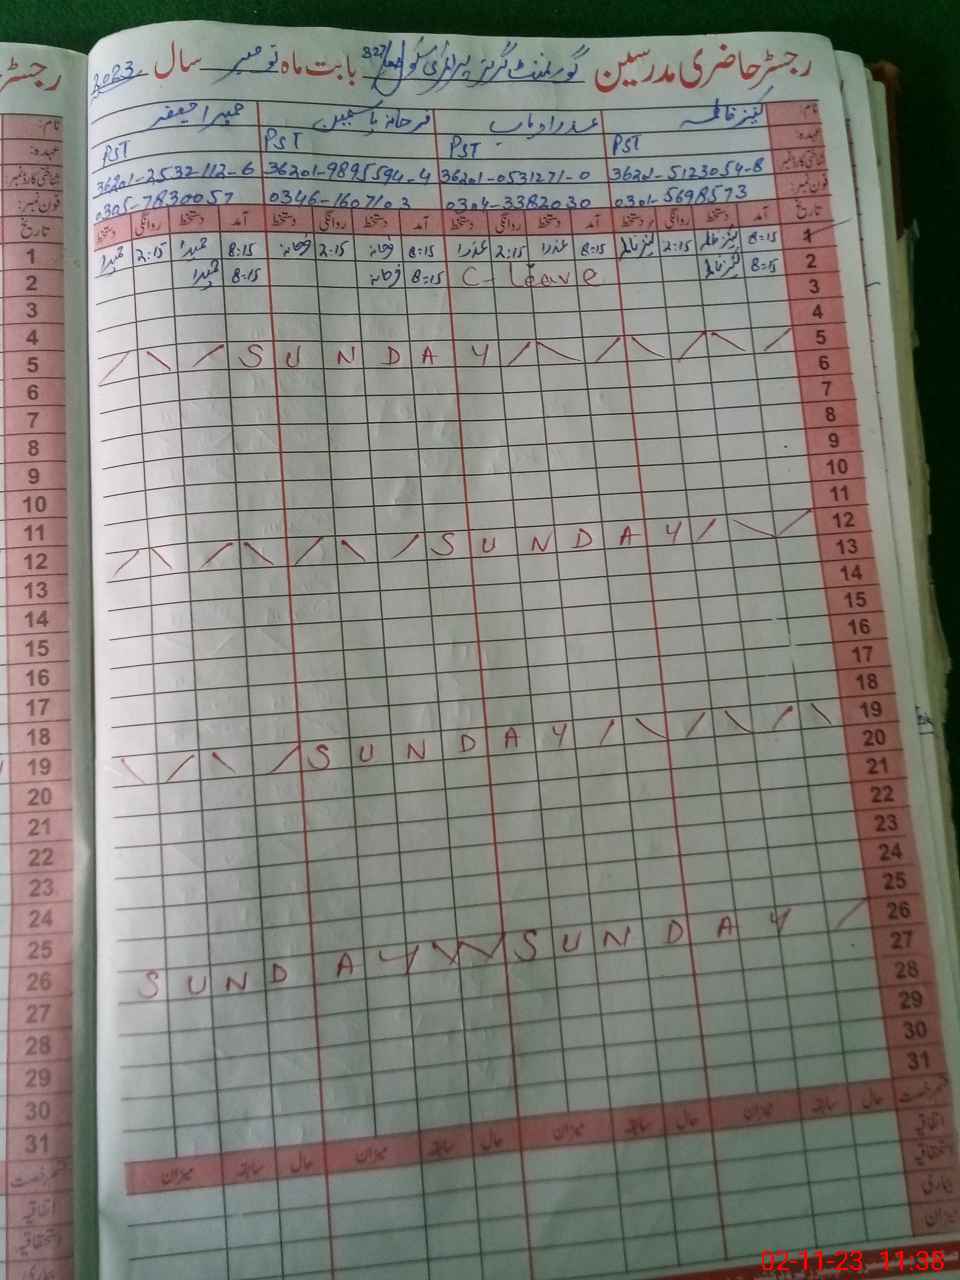 رجسٹر حاضری مدرسین گورنمنٹ گرلز پرائمری سکول 327 بابت ماہ نومبر سال 2023
نام: کنیز فاطمہ عذرا رباب فرحانہ یاسمین حمیرا جعفر
عہدہ: PST PST PST PST
شناختی کارڈ نمبر 36201-5123054-8 36201-0531271-0 36201-9895594-4 36201-2532112-6
فون نمبر: 0301-5698573 0304-3382030 0346-1607103 0305-7830057
تاریخ آمد دستخط روانگی دستخط آمد دستخط روانگی دستخط آمد دستخط روانگی دستخط آمد دستخط روانگی دستخط
1 8:15 کنیز فاطمہ 2:15 کنیز فاطمہ 8:15 عذرا 2:15 عذرا 8:15 فرحانہ 2:15 فرحانہ 8:15 حمیرا 2:15 حمیرا
2 8:15 کنیز فاطمہ C-leave 8:15 فرحانہ 8:15 حمیرا
3
4
5 SUNDAY
6
7
8
9
10
11
12 SUNDAY
13
14
15
16
17
18
19 SUNDAY
20
21
22
23
24
25
26 SUNDAY SUNDAY
27
28
29
30
31
حال سابقہ میزان حال سابقہ میزان حال سابقہ میزان حال سابقہ میزان
اتفاقیہ
استحقاقیہ
بیماری
میزان
02-11-23 11:38